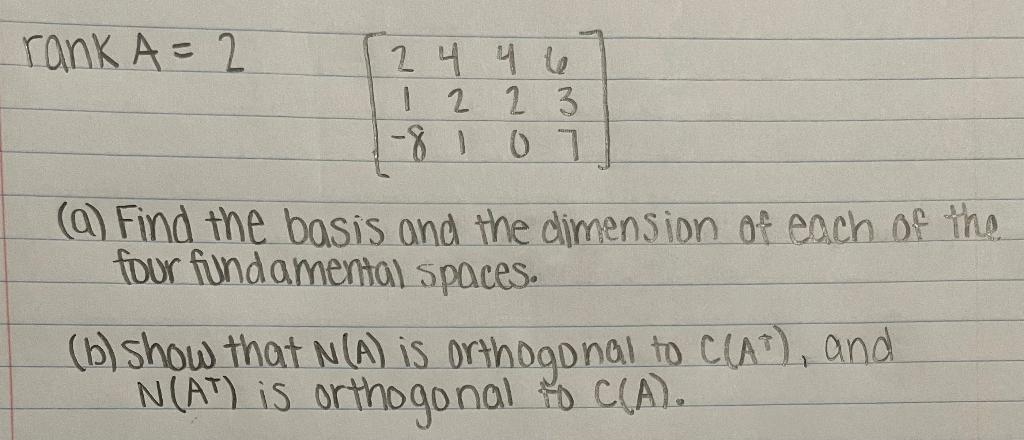 rank A = 2
2 4 4 6
1 2 2 3
-8 1 0 7
(a) Find the basis and the dimension of each of the
four fundamental spaces.
(b) show that N(A) is orthogonal to C(Aᵀ), and
N(Aᵀ) is orthogonal to C(A).